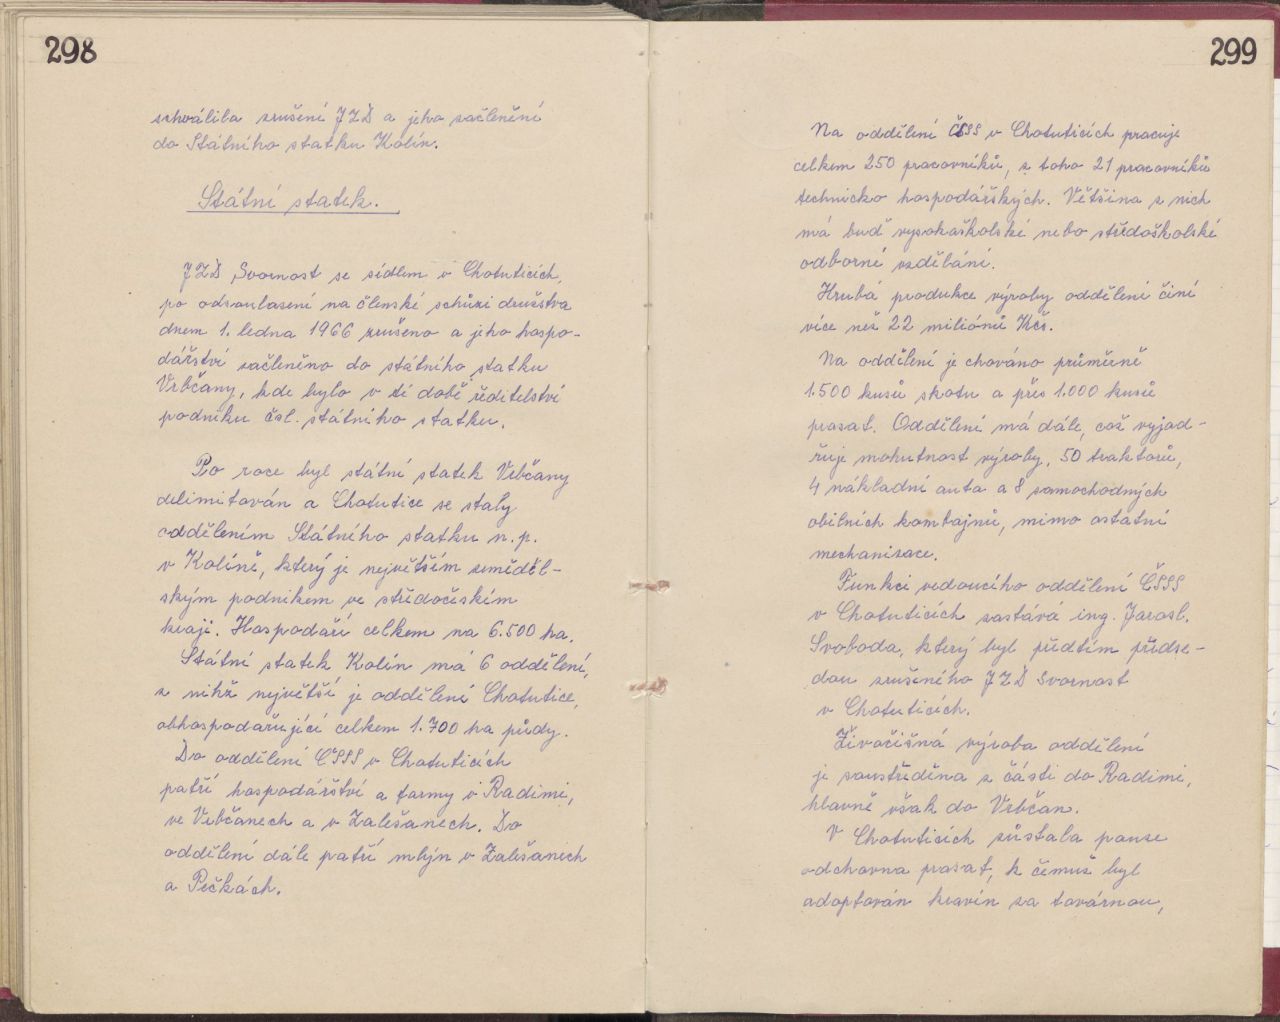 298
schválila zrušení JZD a jeho začlenění
do Státního statku Kolín.
Státní statek.
JZD Svornost se sídlem v Chotuticích,
po odsouhlasení na členské schůzi družstva
dnem 1. ledna 1966 zrušeno a jeho hospo-
dářství začleněno do státního statku
Vrbčany, kde bylo v té době ředitelství
podniku čsl. státního statku.
Po roce byl státní statek Vrbčany
delimitován a Chotutice se staly
oddělením Státního statku n.p.
v Kolíně, který je největším zeměděl-
ským podnikem ve středočeském
kraji. Hospodaří celkem na 6.500 ha.
Státní statek Kolín má 6 oddělení,
z nihž největší je oddělení Chotutice,
obhospodařující celkem 1.700 ha půdy.
Do oddělení ČSSS v Chotuticích
patří hospodářství a farmy v Radimi,
ve Vrbčanech a v Zalešanech. Do
oddělení dále patří mlýn v Zalešanech
a Pečkách.
299
Na oddělení ČSSS v Chotuticích pracuje
celkem 250 pracovníků, z toho 21 pracovníků
technicko hospodářských. Většina z nich
má buď vysokoškolské nebo středoškolské
odborné vzdělání.
Hrubá produkce výroby oddělení činí
více než 22 miliónů Kčs.
Na oddělení je chováno průměrně
1.500 kusů skotu a přes 1.000 kusů
prasat. Oddělení má dále, což vyjad-
řuje mohutnost výroby, 50 traktorů,
4 nákladní auta a 8 samochodných
obilních kombajnů, mimo ostatní
mechanisace.
Funkci vedoucího oddělení ČSSS
v Chotuticích zastává ing. Jarosl.
Svoboda, který byl předtím předse-
dou zrušeného JZD Svornost
v Chotuticích.
Živočišná výroba oddělení
je soustředěna z části do Radimi,
hlavně však do Vrbčan.
V Chotuticích zůstala pouze
odchovna prasat, k čemuž byl
adaptován kravín za továrnou,